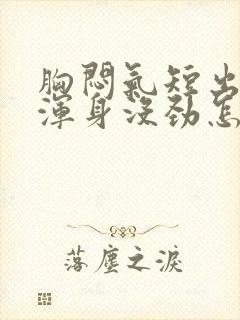 胸悶氣短出
渾身沒勁怎
落塵之淚